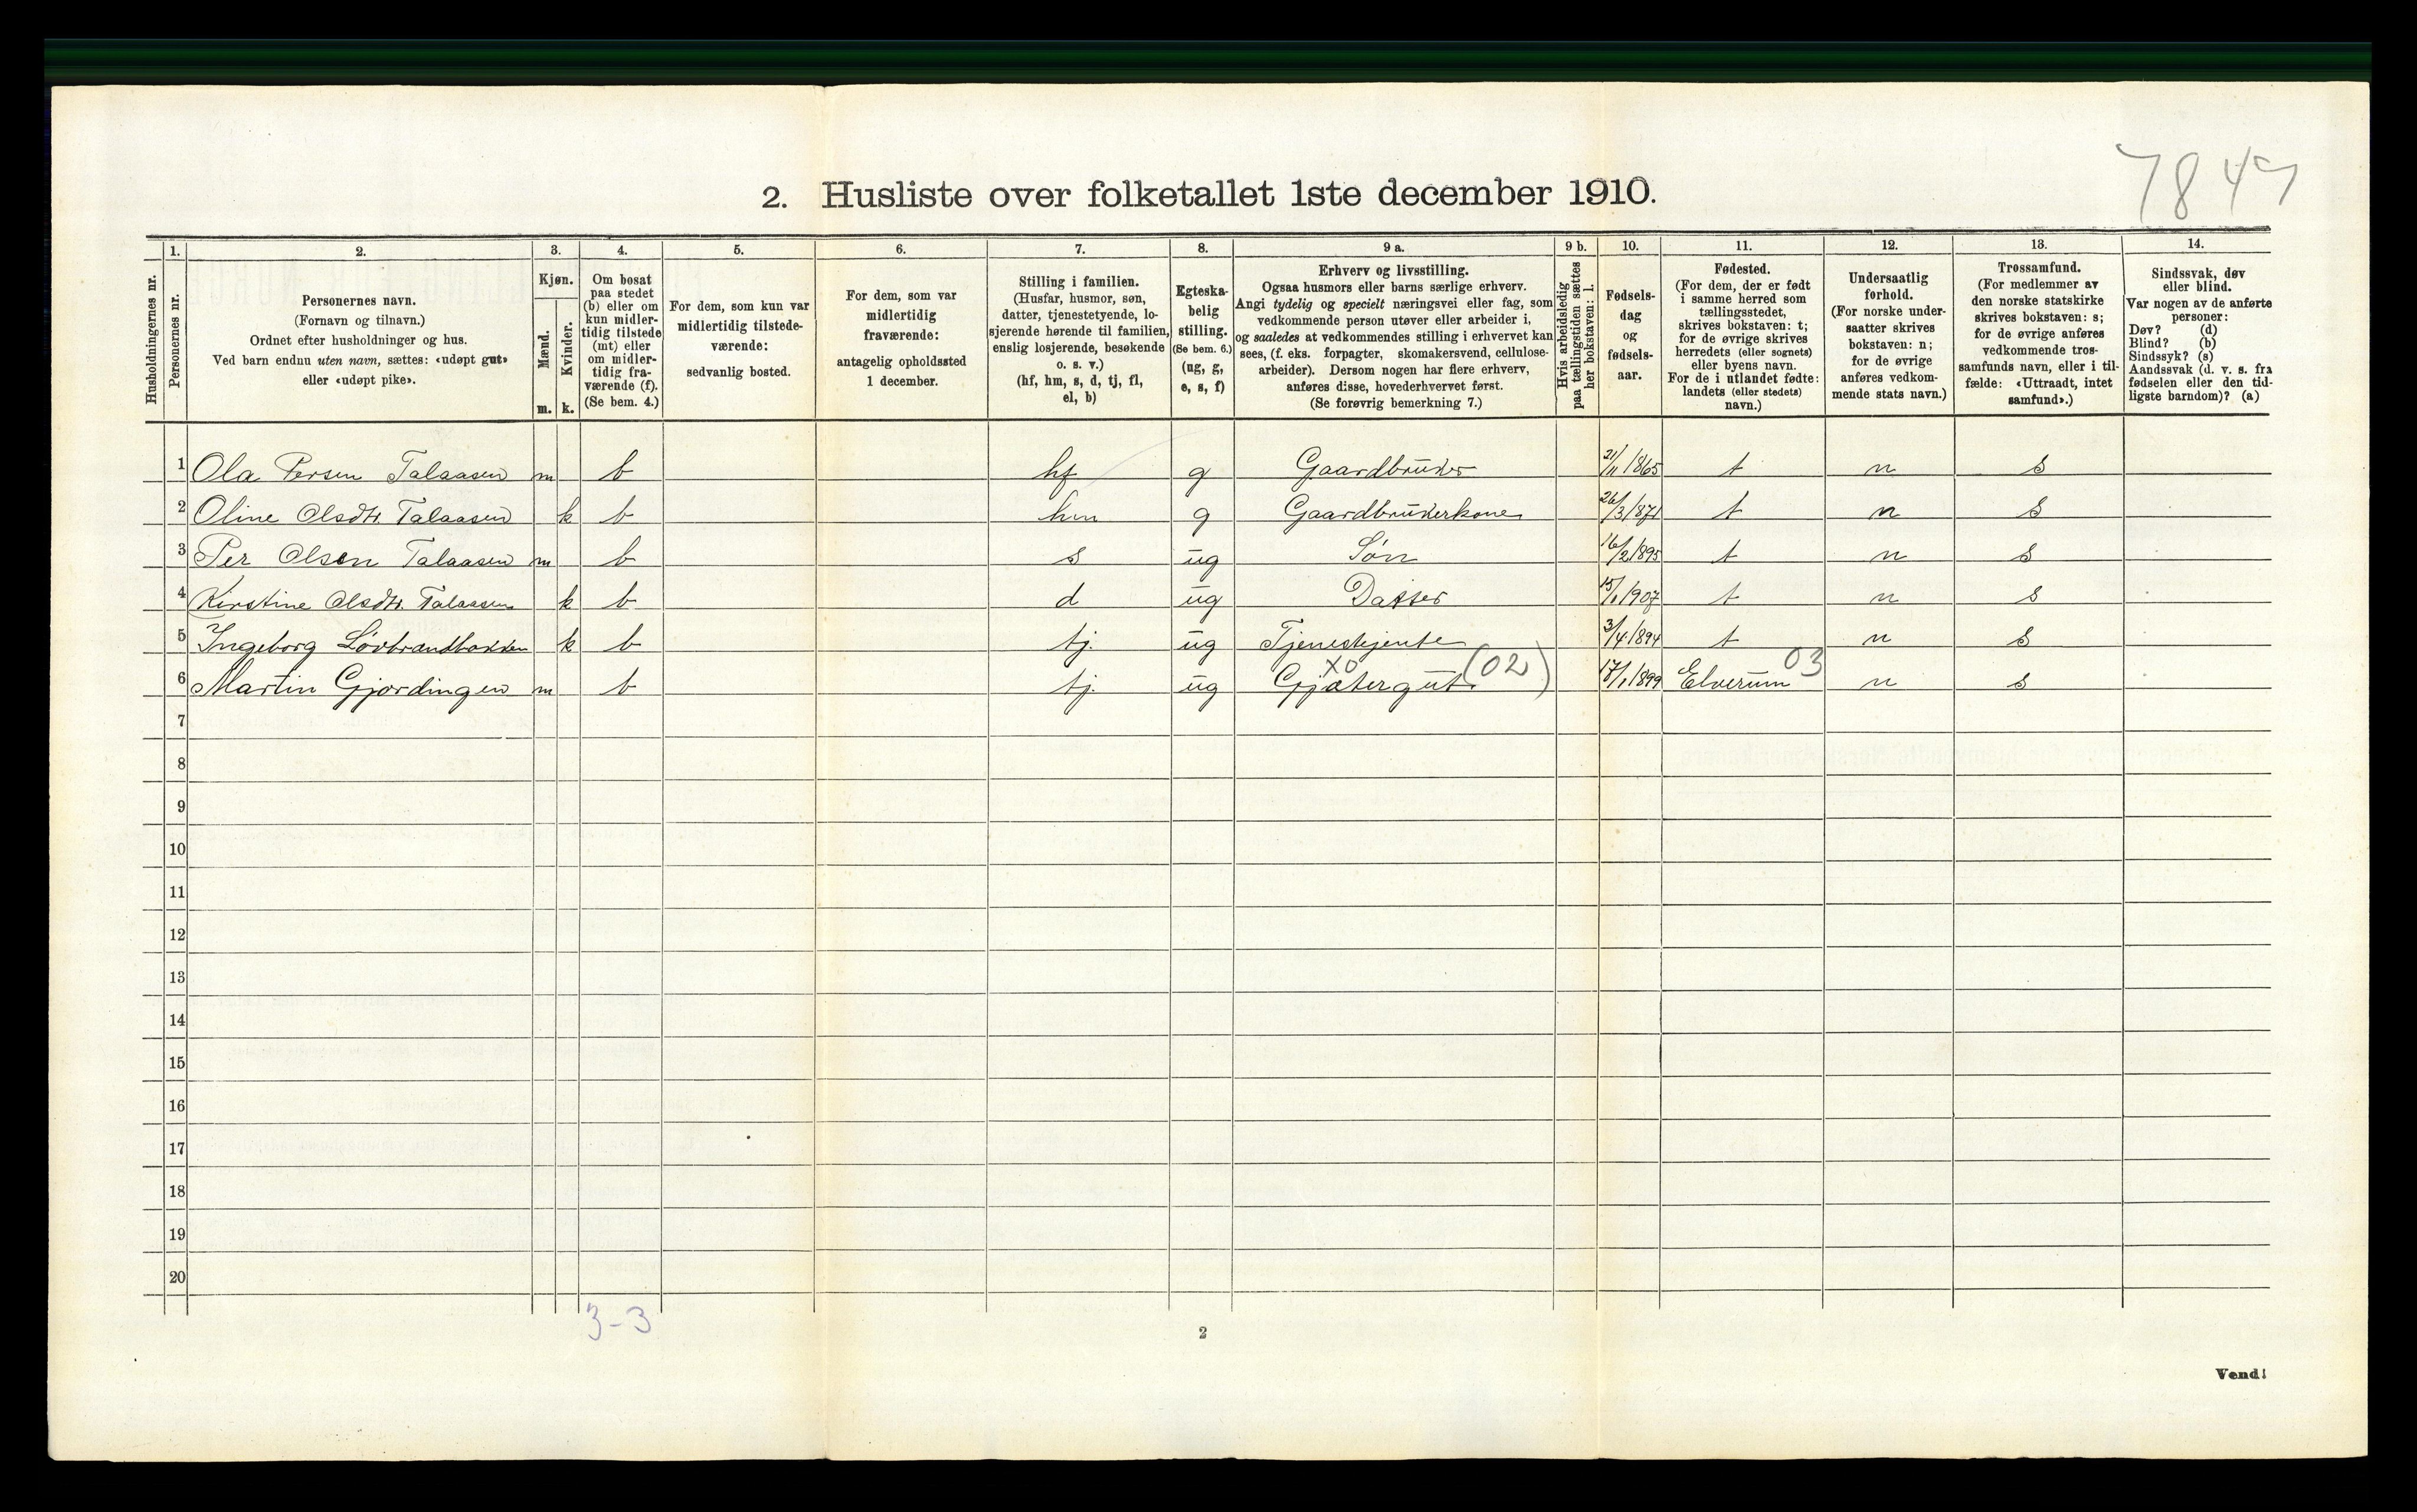 7847
2. Husliste over folketallet 1ste december 1910.
Husholdningernes nr.
1. Personernes nr.
2. Personernes navn.
(Fornavn og tilnavn.)
Ordnet efter husholdninger og hus.
Ved barn endnu uten navn, sættes: «udøpt gut»
eller «udøpt pike».
3. Kjøn.
Mænd. m.
Kvinder. k.
4. Om bosat
paa stedet
(b) eller om
kun midler-
tidig tilstede
(mt) eller
om midler-
tidig fra-
værende (f).
(Se bem. 4.)
5. For dem, som kun var
midlertidig tilstede-
værende:
sedvanlig bosted.
6. For dem, som var
midlertidig
fraværende:
antagelig opholdssted
1 december.
7. Stilling i familien.
(Husfar, husmor, søn,
datter, tjenestetyende, lo-
sjerende hørende til familien,
enslig losjerende, besøkende
o. s. v.)
(hf, hm, s, d, tj, fl,
el, b)
8. Egteska-
belig
stilling.
(Se bem. 6.)
(ug, g,
e, s, f)
9 a. Erhverv og livsstilling.
Ogsaa husmors eller barns særlige erhverv.
Angi tydelig og specielt næringsvei eller fag, som
vedkommende person utøver eller arbeider i,
og saaledes at vedkommendes stilling i erhvervet kan
sees, (f. eks. forpagter, skomakersvend, cellulose-
arbeider). Dersom nogen har flere erhverv,
anføres disse, hovederhvervet først.
(Se forøvrig bemerkning 7.)
9 b. Hvis arbeidsledig
paa tællingstiden sættes
her bokstaven: l.
10. Fødsels-
dag
og
fødsels-
aar.
11. Fødested.
(For dem, der er født
i samme herred som
tællingsstedet,
skrives bokstaven: t;
for de øvrige skrives
herredets (eller sognets)
eller byens navn.
For de i utlandet fødte:
landets (eller stedets)
navn.)
12. Undersaatlig
forhold.
(For norske under-
saatter skrives
bokstaven: n;
for de øvrige
anføres vedkom-
mende stats navn.)
13. Trossamfund.
(For medlemmer av
den norske statskirke
skrives bokstaven: s;
for de øvrige anføres
vedkommende tros-
samfunds navn, eller i til-
fælde: «Uttraadt, intet
samfund».)
14. Sindssvak, døv
eller blind.
Var nogen av de anførte
personer:
Døv? (d)
Blind? (b)
Sindssyk? (s)
Aandssvak (d. v. s. fra
fødselen eller den tid-
ligste barndom)? (a)
1 Ola Persen Talaasen m b hf g Gaardbruker 21/11 1865 t n s
2 Oline Olsdtr. Talaasen k b hm g Gaardbrukerkone 26/3 1871 t n s
3 Per Olsen Talaasen m b s ug Søn 16/2 1895 t n s
4 Kirstine Olsdtr. Talaasen k b d ug Datter 15/1 1907 t n s
5 Ingeborg Løvbrandbakken k b tj. ug Tjenestejente 3/4 1894 t n s
XO (02) 03
6 Martin Gjørdingen m b tj. ug Gjætergut. 17/1 1899 Elverum n s
7
8
9
10
11
12
13
14
15
16
17
18
19
20
3-3
2
Vend!